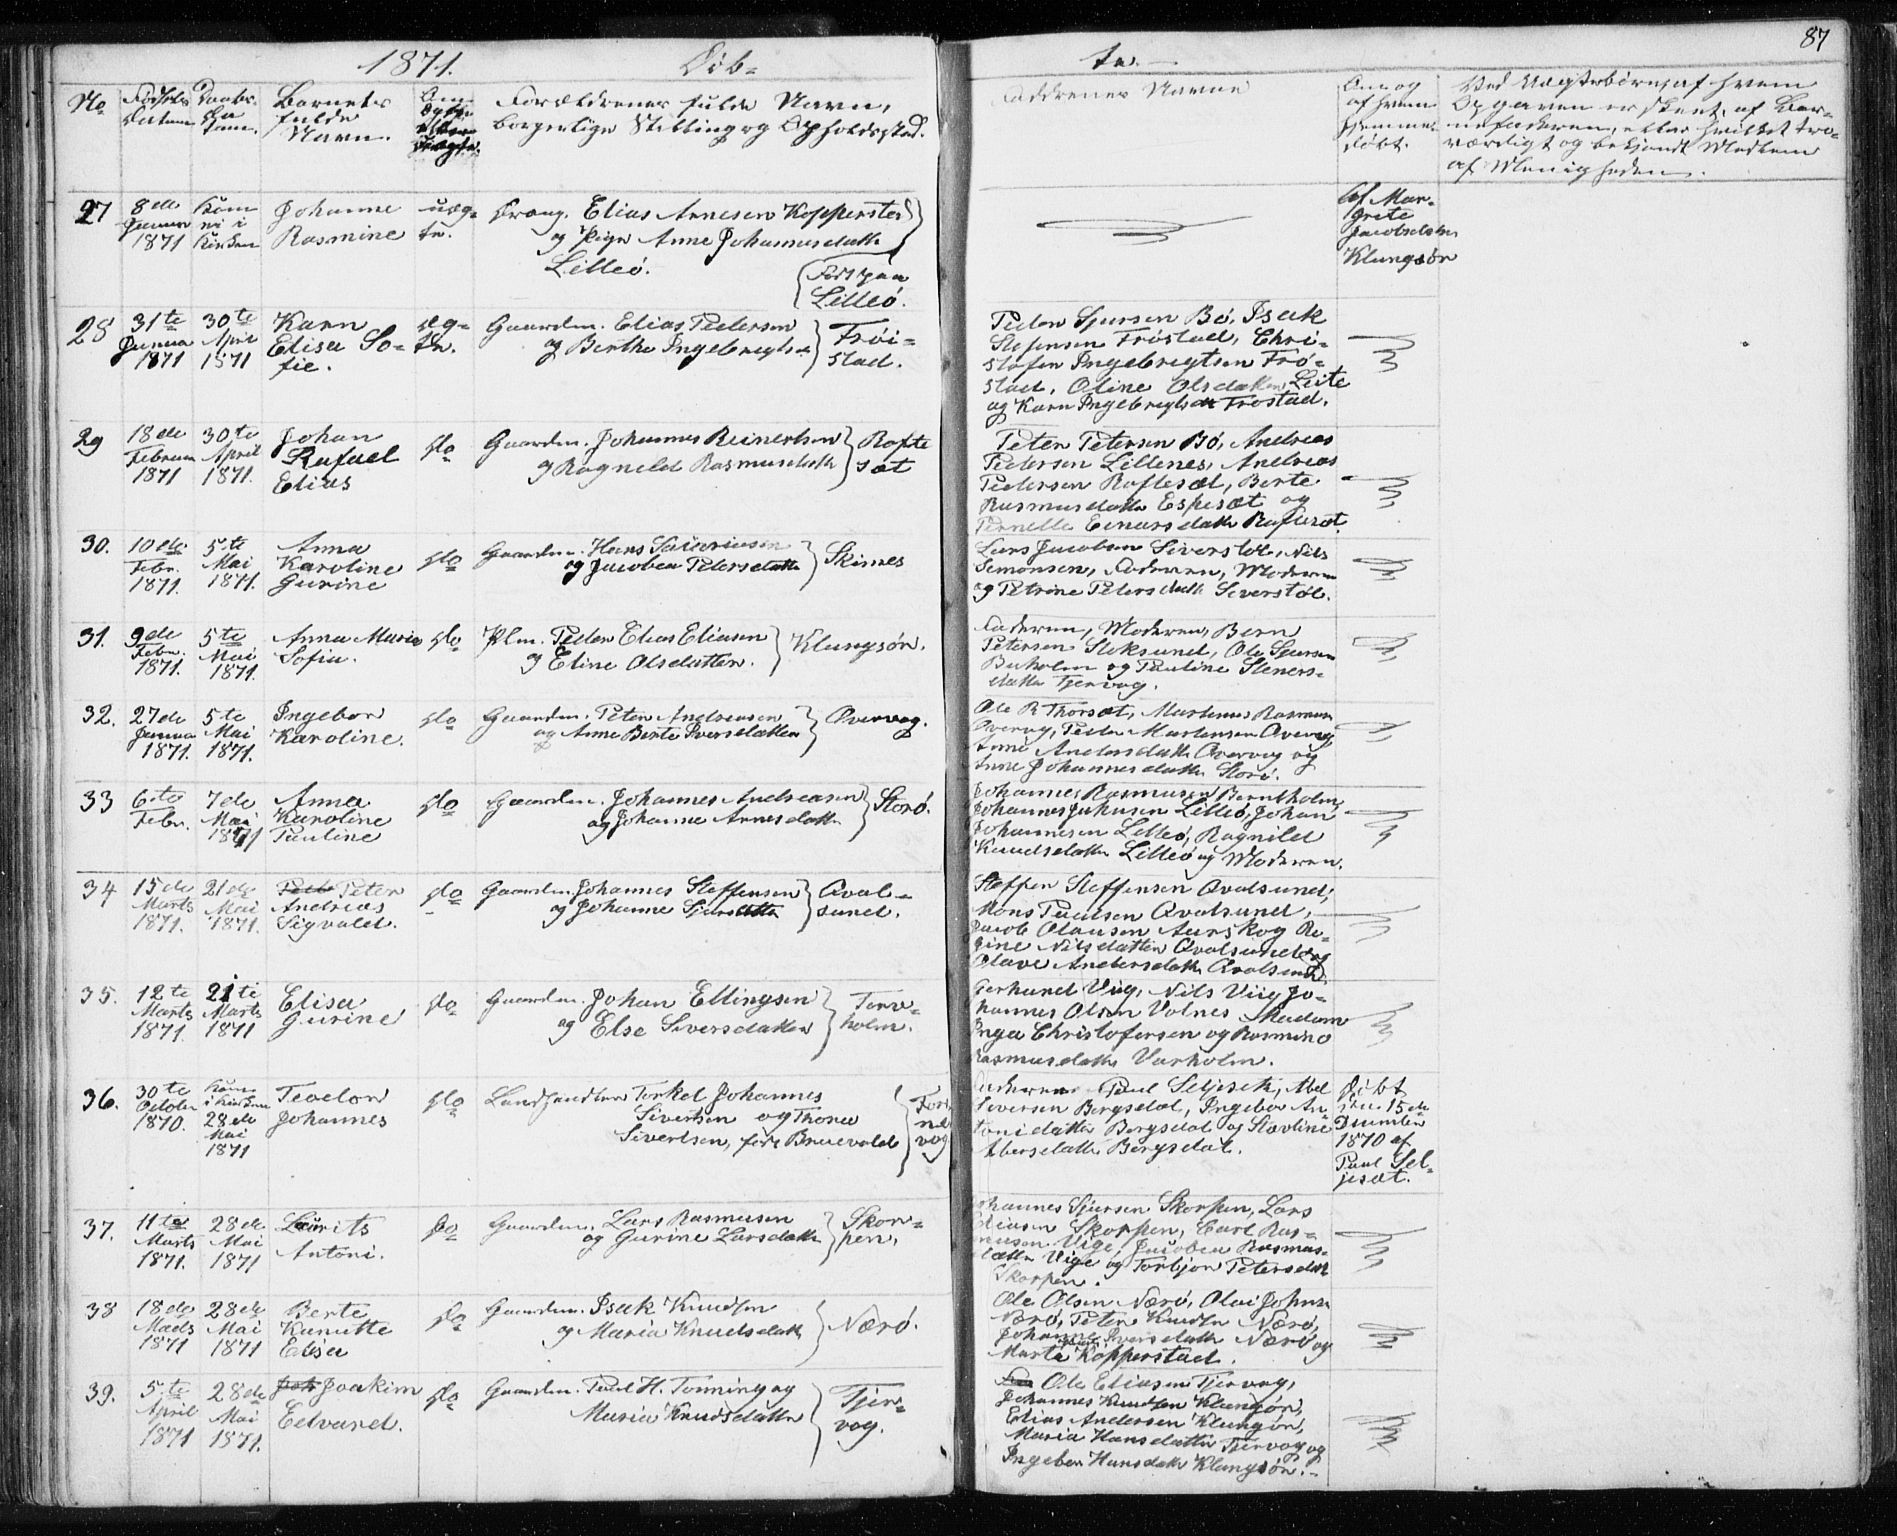 1871.
Döb=
te.
87
No
Födsels
Datum
Daabs
Datum.
Barnets
fulde
Navn.
Om
ægte
eller
uægte.
Forældrenes fulde Navn,
borgerlige Stilling og Opholdssted.
Faddrenes Navne
Om og
af hvem
hjemme
døbt.
Ved Uægtebørn, af hvem
Opgaven er skeet, af Bar-
nefaderen, eller hvilket tro-
værdigt og bekjendt Medlem
af Menigheden.
27
8de
Januar
1871
Johanne
Rasmine
uæg-
te.
Dreng. Elias Arnesen Kopperstad
og Pige Anne Johannesdatter
Lilleö.
Födt paa
Lilleö.
Af Mar-
grete
Jacobsdatter
Klungsör
28
31te
Januar
1871
30te
April
1871
Karn
Elisa So-
fie.
æg-
te.
Gaardm. Elias Pedersen
og Berthe Ingebrigtsd.
Fröi-
stad.
Peder Sjursen Bö, Isak
Stefensen Fröstad, Chri-
stofer Ingebrigtsen Frö-
stad, Oline Olsdatter Leite
og Karn Ingebrigtsdtr Frostad.
29
18de
Februar
1871
30te
April
1871.
Johan
Rafael
Elias
do
Gaardm. Johannes Reinertsen
og Ragnild Rasmusdatter
Rafte
sæt
Peter Petersen Bö, Andreas
Pedersen Lillenes, Andreas
Pedersen Raftesæt, Berte
Rasmusdatter Espesæt og
Pernelle Einarsdatter Raftesæt.
30.
10de
Febr.
1871.
5te
Mai
1871.
Anna
Karoline
Gurine
do
Gaardm. Hans
og Jacobea Petersdatter
Skines
Lars Jacobsen Siverstöl, Nils
Simonsen, Faderen, Moderen
og Petrine Petersdatter Siverstöl.
31.
9de
Febr.
1871.
5te
Mai
1871.
Anna Maria
Sofia.
do
Plm. Peder Elias Eliasen
og Eline Olsdatter.
Klungsör.
Faderen, Moderen, Bern
Petersen Stoksund, Ole Sjursen
Buholm og Pauline Steners-
datter Tjervog.
32.
27de
Januar
1871.
5te
Mai
1871.
Ingebor
Karoline.
do
Gaardm. Peter Andreasen
og Anne Berte Iversdatter
Overvog.
Ole R Thorsæt, Martinus Rasmusen
Overvog, Peder Martensen Overvog
Anne Andersdatter Overvog og
Anne Johannesdatter Storö.
33
6te
Febr.
7de
Mai
1871
Anna
Karoline
Pauline
do
Gaardm. Johannes Andreasen
og Johanne Arnesdatter
Storö.
Johannes Rasmusen Berntholm,
Johannes Johnsen Lilleö, Johan
Johannesen Lilleö, Ragnild
Knudsdatter Lilleö og Moderen.
34
15de
Marts
1871.
21de
Mai
1871.
Peter
Andreas
Sigvald.
do
Gaardm. Johannes Steffensen
og Johanne Sjursdatter
Qval-
sund.
Steffen Steffensen Qvalsund,
Mons Paulsen Qvalsund,
Jacob Olausen Aurskog Re-
gine Nilsdatter Qvalsund og
Olave Andersdatter Qvalsund.
35.
12te
Marts
1871.
21te
Marts
1871
Elisa
Gurine
do
Gaardm. Johan Ellingsen
og Else Siversdatter
Torv-
holm.
Gerhard Viig, Nils Viig Jo-
hannes Olsen Volnes Madam
Inga Christofersen og Rasmine
Rasmusdatter Varholm.
36.
30te
October
1870.
i Kirken
28de
Mai
1871
Teodor
Johannes
do
Landhandler Torkel Johannes
Sivertsen og Thora
Sivertsen, född Bruevold
For
ne
vog
Faderen Paul Seljesæt, Abel
Siversen Bergsdal, Ingebor An-
tonidatter Bergsdal og Stavline
Abersdatter Bergsdal.
Döbt
den 15de
December
1870 af
Paul Sel-
jesæt.
37.
11te
Marts
1871.
28de
Mai
1871
Laurits
Antoni.
do
Gaardm. Lars Rasmusen
og Gurine Larsdatter
Skor-
pen.
Johannes Sjursen Skorpen, Lars
Eliasen Skorpen, Carl Ras-
musen Vige, Jacobea Rasmus-
datter Vige og Torbjör Petersdatt
Skorpen.
38
18de
Marts
1871
28de
Mai
1871
Berte
Kanutte
Elisa
do
Gaardm. Isak Knudsen
og Maria Knudsdatter
Nærö.
Ole Olsen Nærö, Olai Johnsen
Nærö, Peter Knudsen Nærö,
Johanne Iversdatter Nærö og
Marte Kopperstad.
39.
5te
April
1871
28de
Mai
1871.
Joakim
Edvard.
do
Gaardm. Paul H. Tonning og
Maria Knudsdatter
Tjer-
vog.
Ole Eliasen Tjervog,
Johannes Knudsen Klungsör,
Elias Andersen Klungsör,
Maria Hansdatter Tjervog og
Ingebor Hansdatter Klungsör.